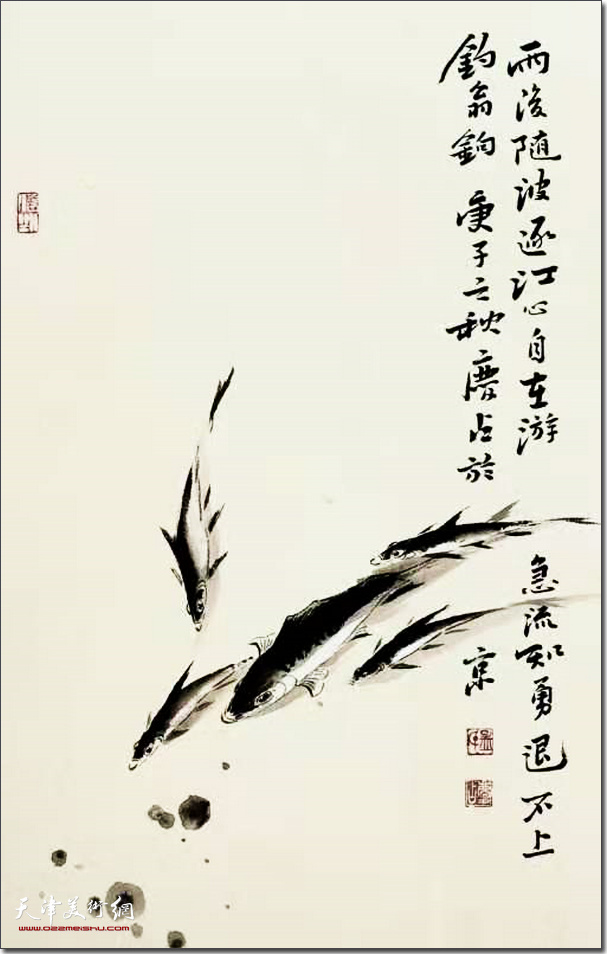 雨後随波逐江心自在游
急流知勇退不上
釣翁鈎 庚子立秋 慶占於
京
天津美術網
www.022meishu.com